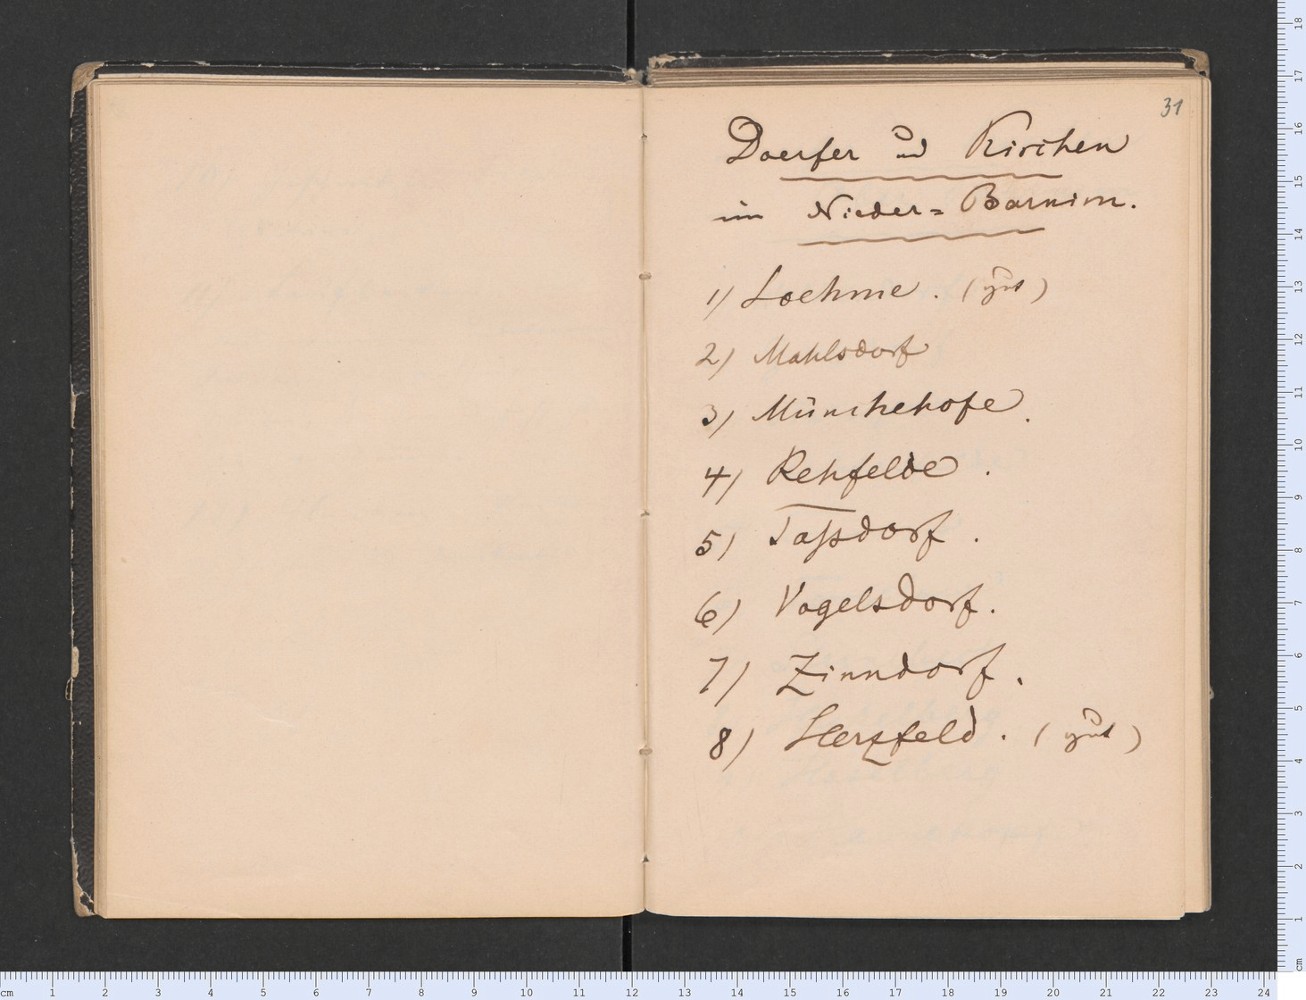 31
Doerfer und Kirchen
im Nieder=Barnim.
1) Loehme. (gut)
2) Mahlsdorf
3) Münchehofe.
4) Rehfelde.
5) Taßdorf.
6) Vogelsdorf.
7) Zinndorf.
8) Herzfeld. (gut)
cm 1 2 3 4 5 6 7 8 9 10 11 12 13 14 15 16 17 18 19 20 21 22 23 24
cm 1 2 3 4 5 6 7 8 9 10 11 12 13 14 15 16 17 18